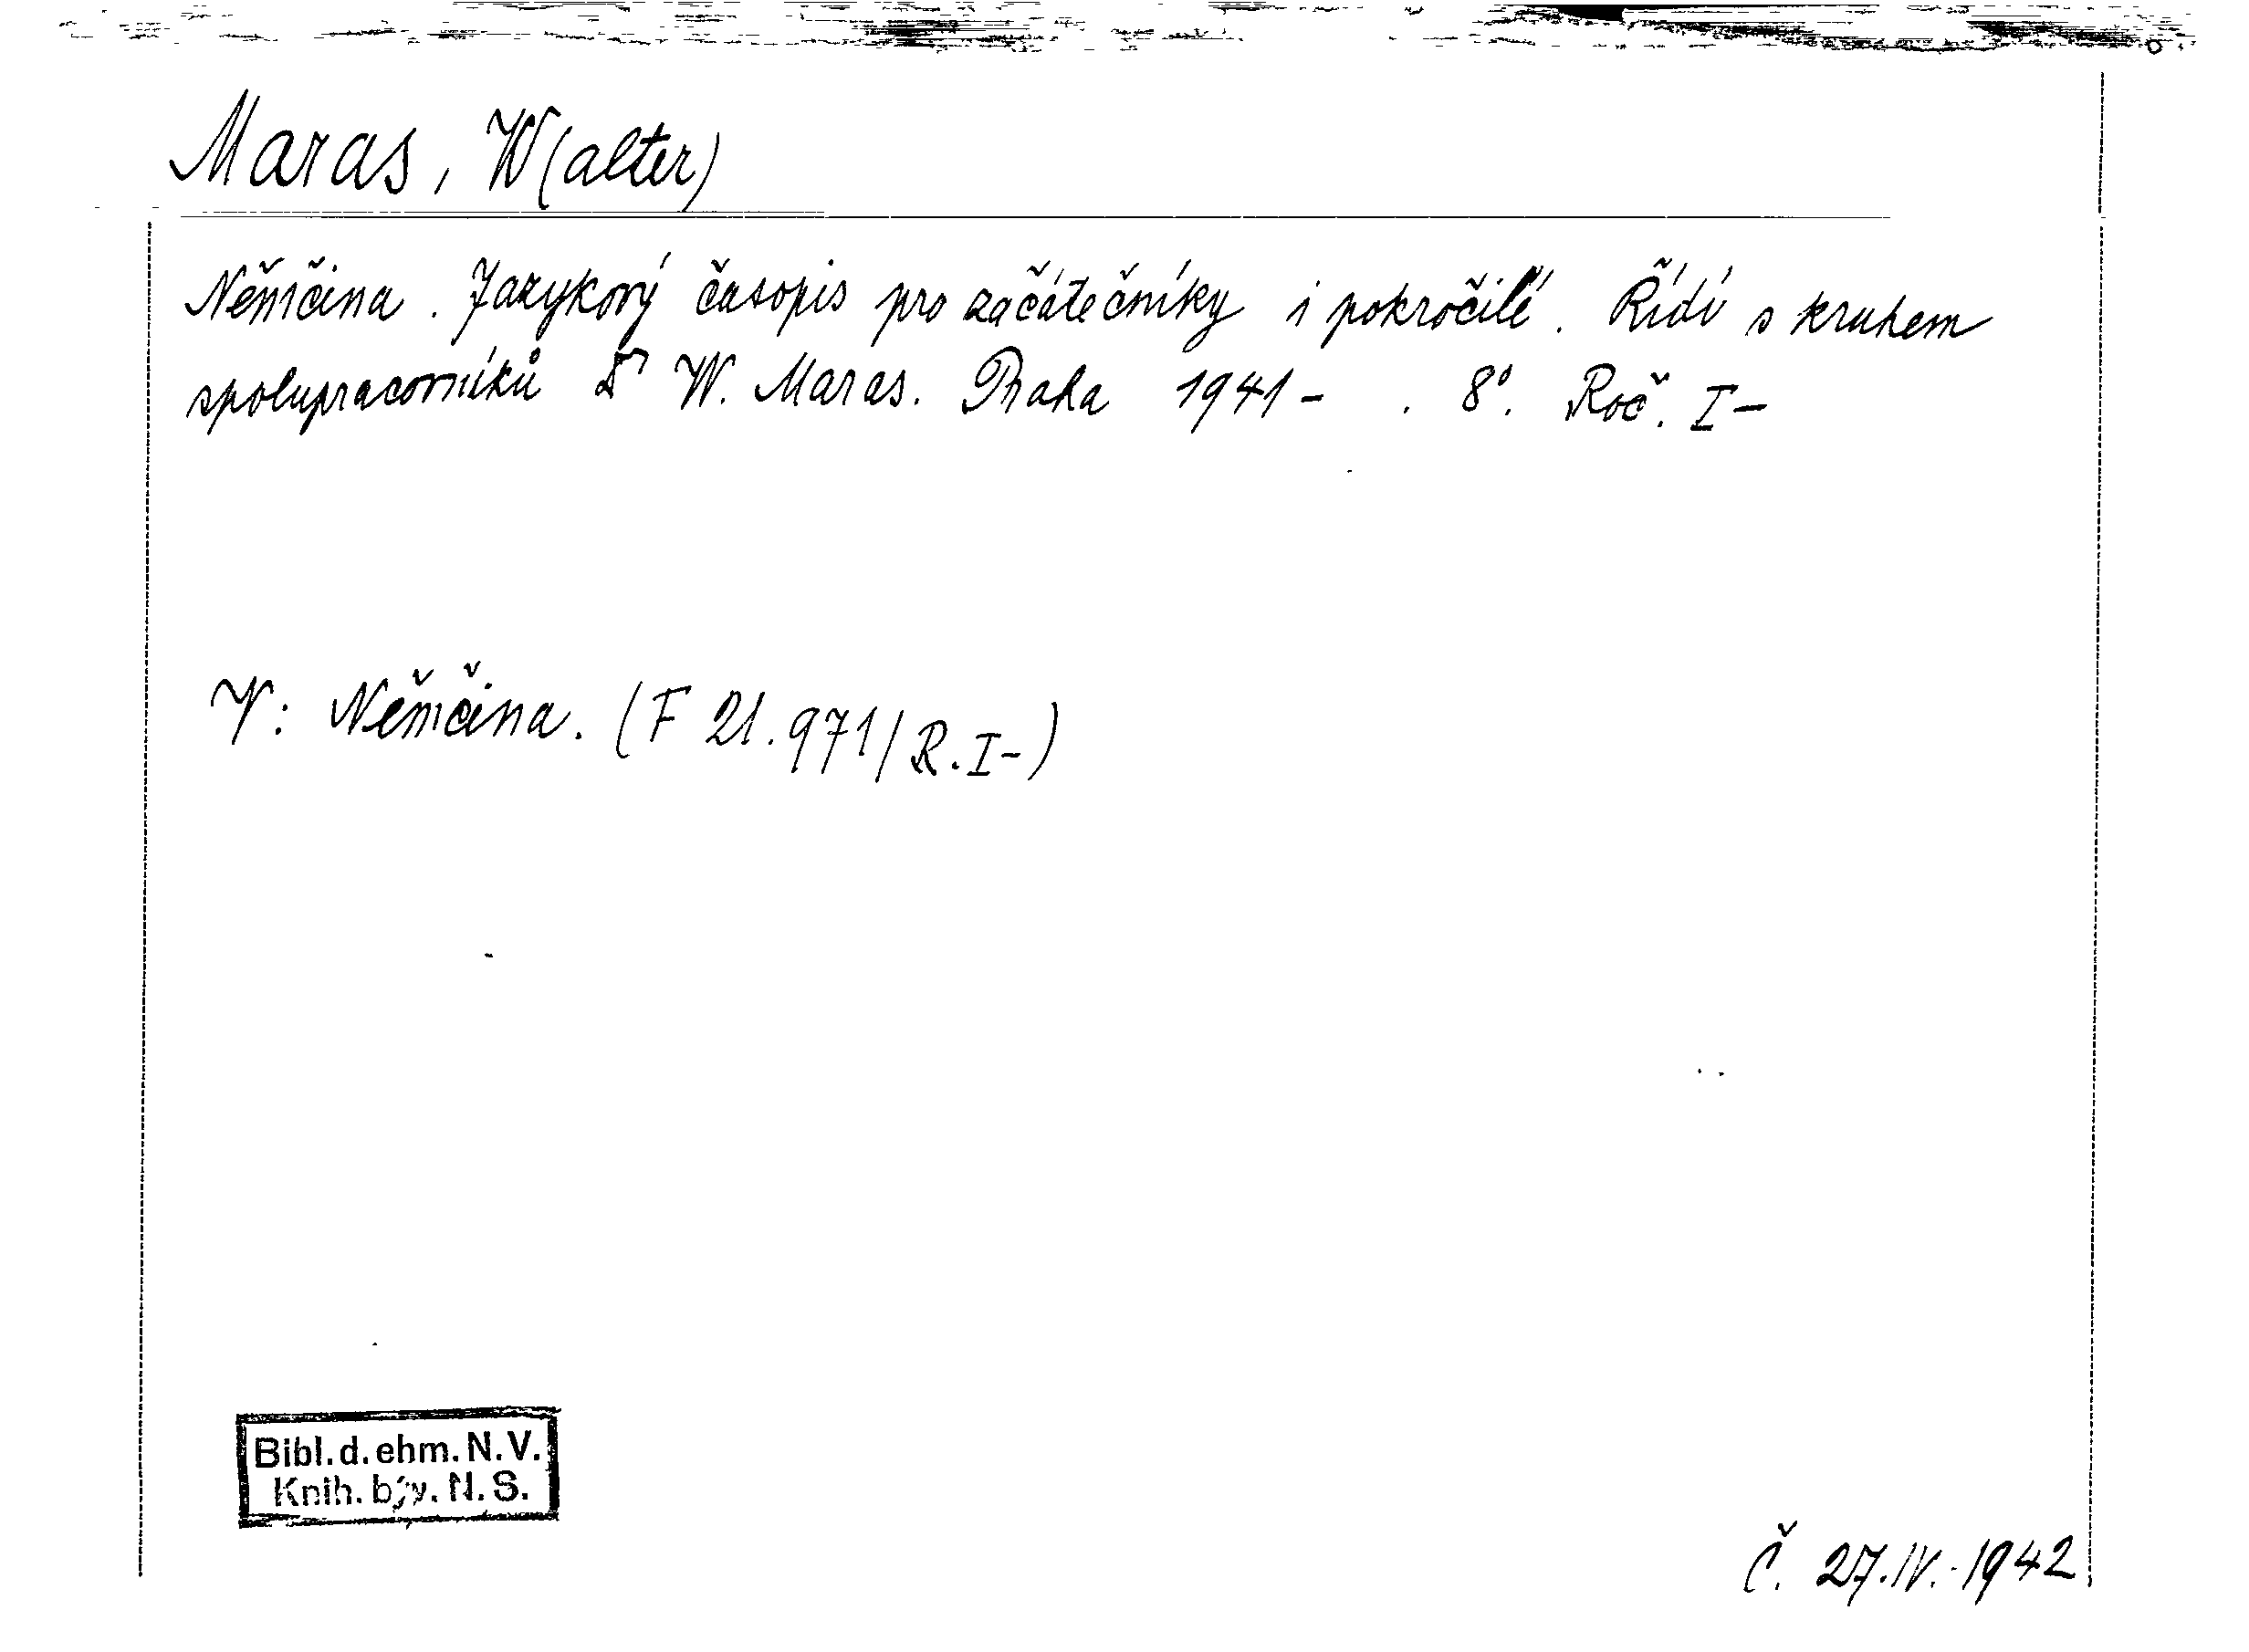 Maras, W(alter)
Němčina. Jazykový časopis pro začátečníky i pokročilé. Řídí s kruhem
spolupracovníků Dr W. Maras. Praha 1941- . 8°. Roč. I-
V: Němčina. (F 21.971/R.I-)
Bibl.d.ehm.N.V.
Knih. býv. N.S.
Č. 27.IV.-1942